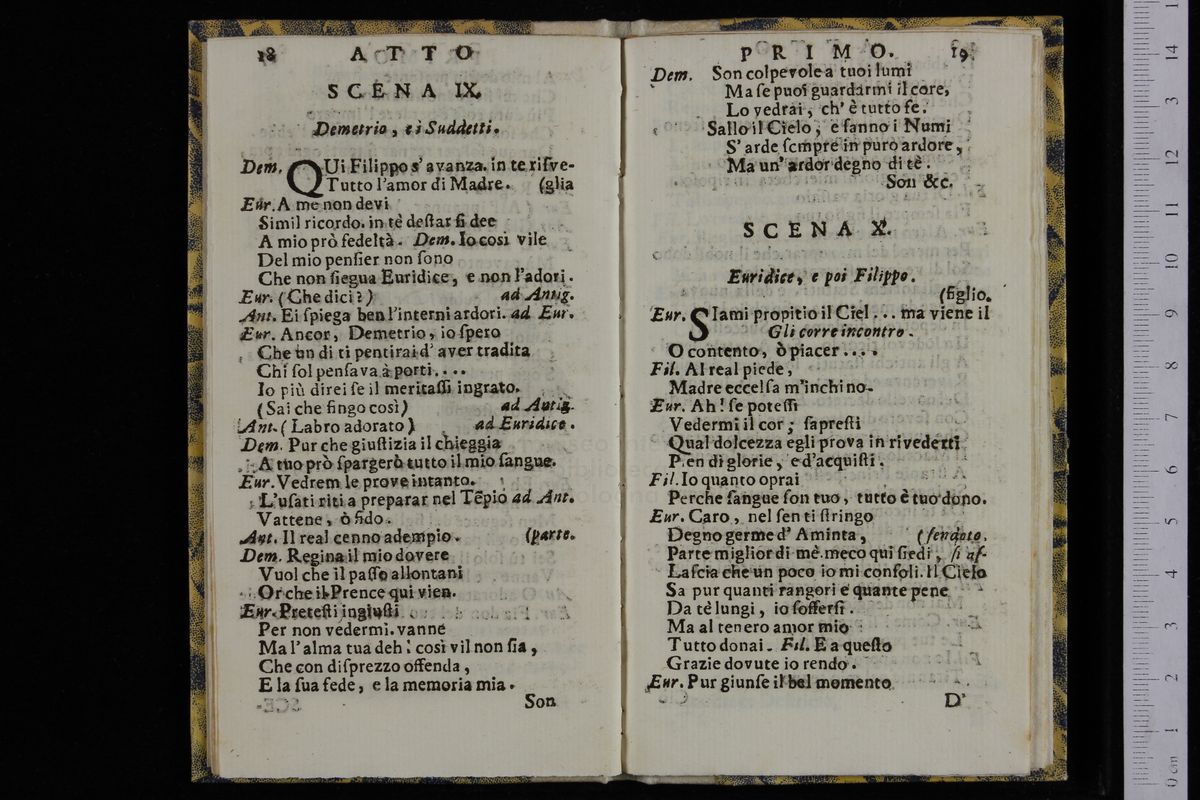 18 ATTO
SCENA IX.
Demetrio, e i Suddetti.
Dem. QUi Filippo s' avanza. in te risve-
Tutto l'amor di Madre. (glia
Eur. A me non devi
Simil ricordo. in tè destar si dee
A mio prò fedeltà. Dem. Io così vile
Del mio pensier non sono
Che non siegua Euridice, e non l'adori.
Eur. (Che dici?) ad Antig.
Ant. Ei spiega ben l'interni ardori. ad Eur.
Eur. Ancor, Demetrio, io spero
Che un di ti pentirai d' aver tradita
Chi sol pensava à porti....
Io più direi se il meritassi ingrato.
(Sai che fingo così) ad Antig.
Ant. (Labro adorato) ad Euridice.
Dem. Pur che giustizia il chieggia
A tuo prò spargerò tutto il mio sangue.
Eur. Vedrem le prove intanto.
L'usati riti a preparar nel Tẽpio ad Ant.
Vattene, ò fido.
Ant. Il real cenno adempio. (parte.
Dem. Regina il mio dovere
Vuol che il passo allontani
Or che il Prence qui vien.
Eur. Pretesti ingiusti
Per non vedermi. vanne
Ma l' alma tua deh! così vil non sia,
Che con disprezzo offenda,
E la sua fede, e la memoria mia.
Son
PRIMO. 19
Dem. Son colpevole a tuoi lumi
Ma se puoi guardarmi il core,
Lo vedrai, ch' è tutto fe.
Sallo il Cielo, e sanno i Numi
S' arde sempre in puro ardore,
Ma un' ardor degno di tè.
Son &c.
SCENA X.
Euridice, e poi Filippo.
(figlio.
Eur. SIami propitio il Ciel... ma viene il
Gli corre incontro.
O contento, ò piacer....
Fil. Al real piede,
Madre eccelsa m'inchino.
Eur. Ah! se potessi
Vedermi il cor; sapresti
Qual dolcezza egli prova in rivederti
Pien di glorie, e d'acquisti.
Fil. Io quanto oprai
Perche sangue son tuo, tutto è tuo dono.
Eur. Caro, nel sen ti stringo
Degno germe d' Aminta, (sendato.
Parte miglior di mè. meco qui siedi, si af-
Lascia che un poco io mi consoli. Il Cielo
Sa pur quanti rangori e quante pene
Da tè lungi, io soffersi.
Ma al tenero amor mio
Tutto donai. Fil. E a questo
Grazie dovute io rendo.
Eur. Pur giunse il bel momento
D'